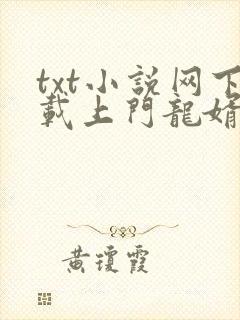 txt小説网下
載上門龍婿
黄瓊霞